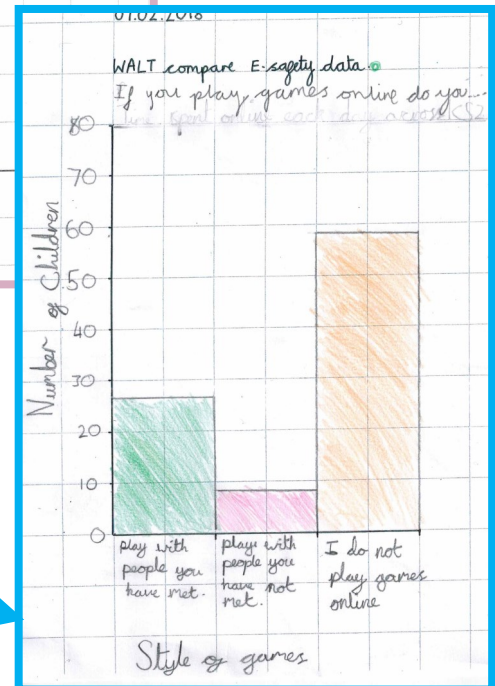 01.02.2018
WALT compare E-safety data.
If you play games online do you....
time spent online each day across KS2
80
70
60
50
40
30
20
10
0
Number of Children
play with
people you
have met.
play with
people you
have not
met.
I do not
play games
online
Style of games